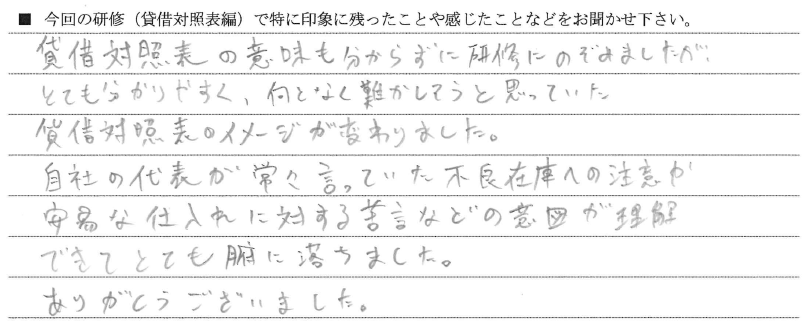 ■ 今回の研修（貸借対照表編）で特に印象に残ったことや感じたことなどをお聞かせ下さい。
貸借対照表の意味も分からずに研修にのぞみましたが、
とても分かりやすく、何となく難かしそうと思っていた
貸借対照表のイメージが変わりました。
自社の代表が常々言っていた不良在庫への注意や
安易な仕入れに対する苦言などの意図が理解
できてとても腑に落ちました。
ありがとうございました。